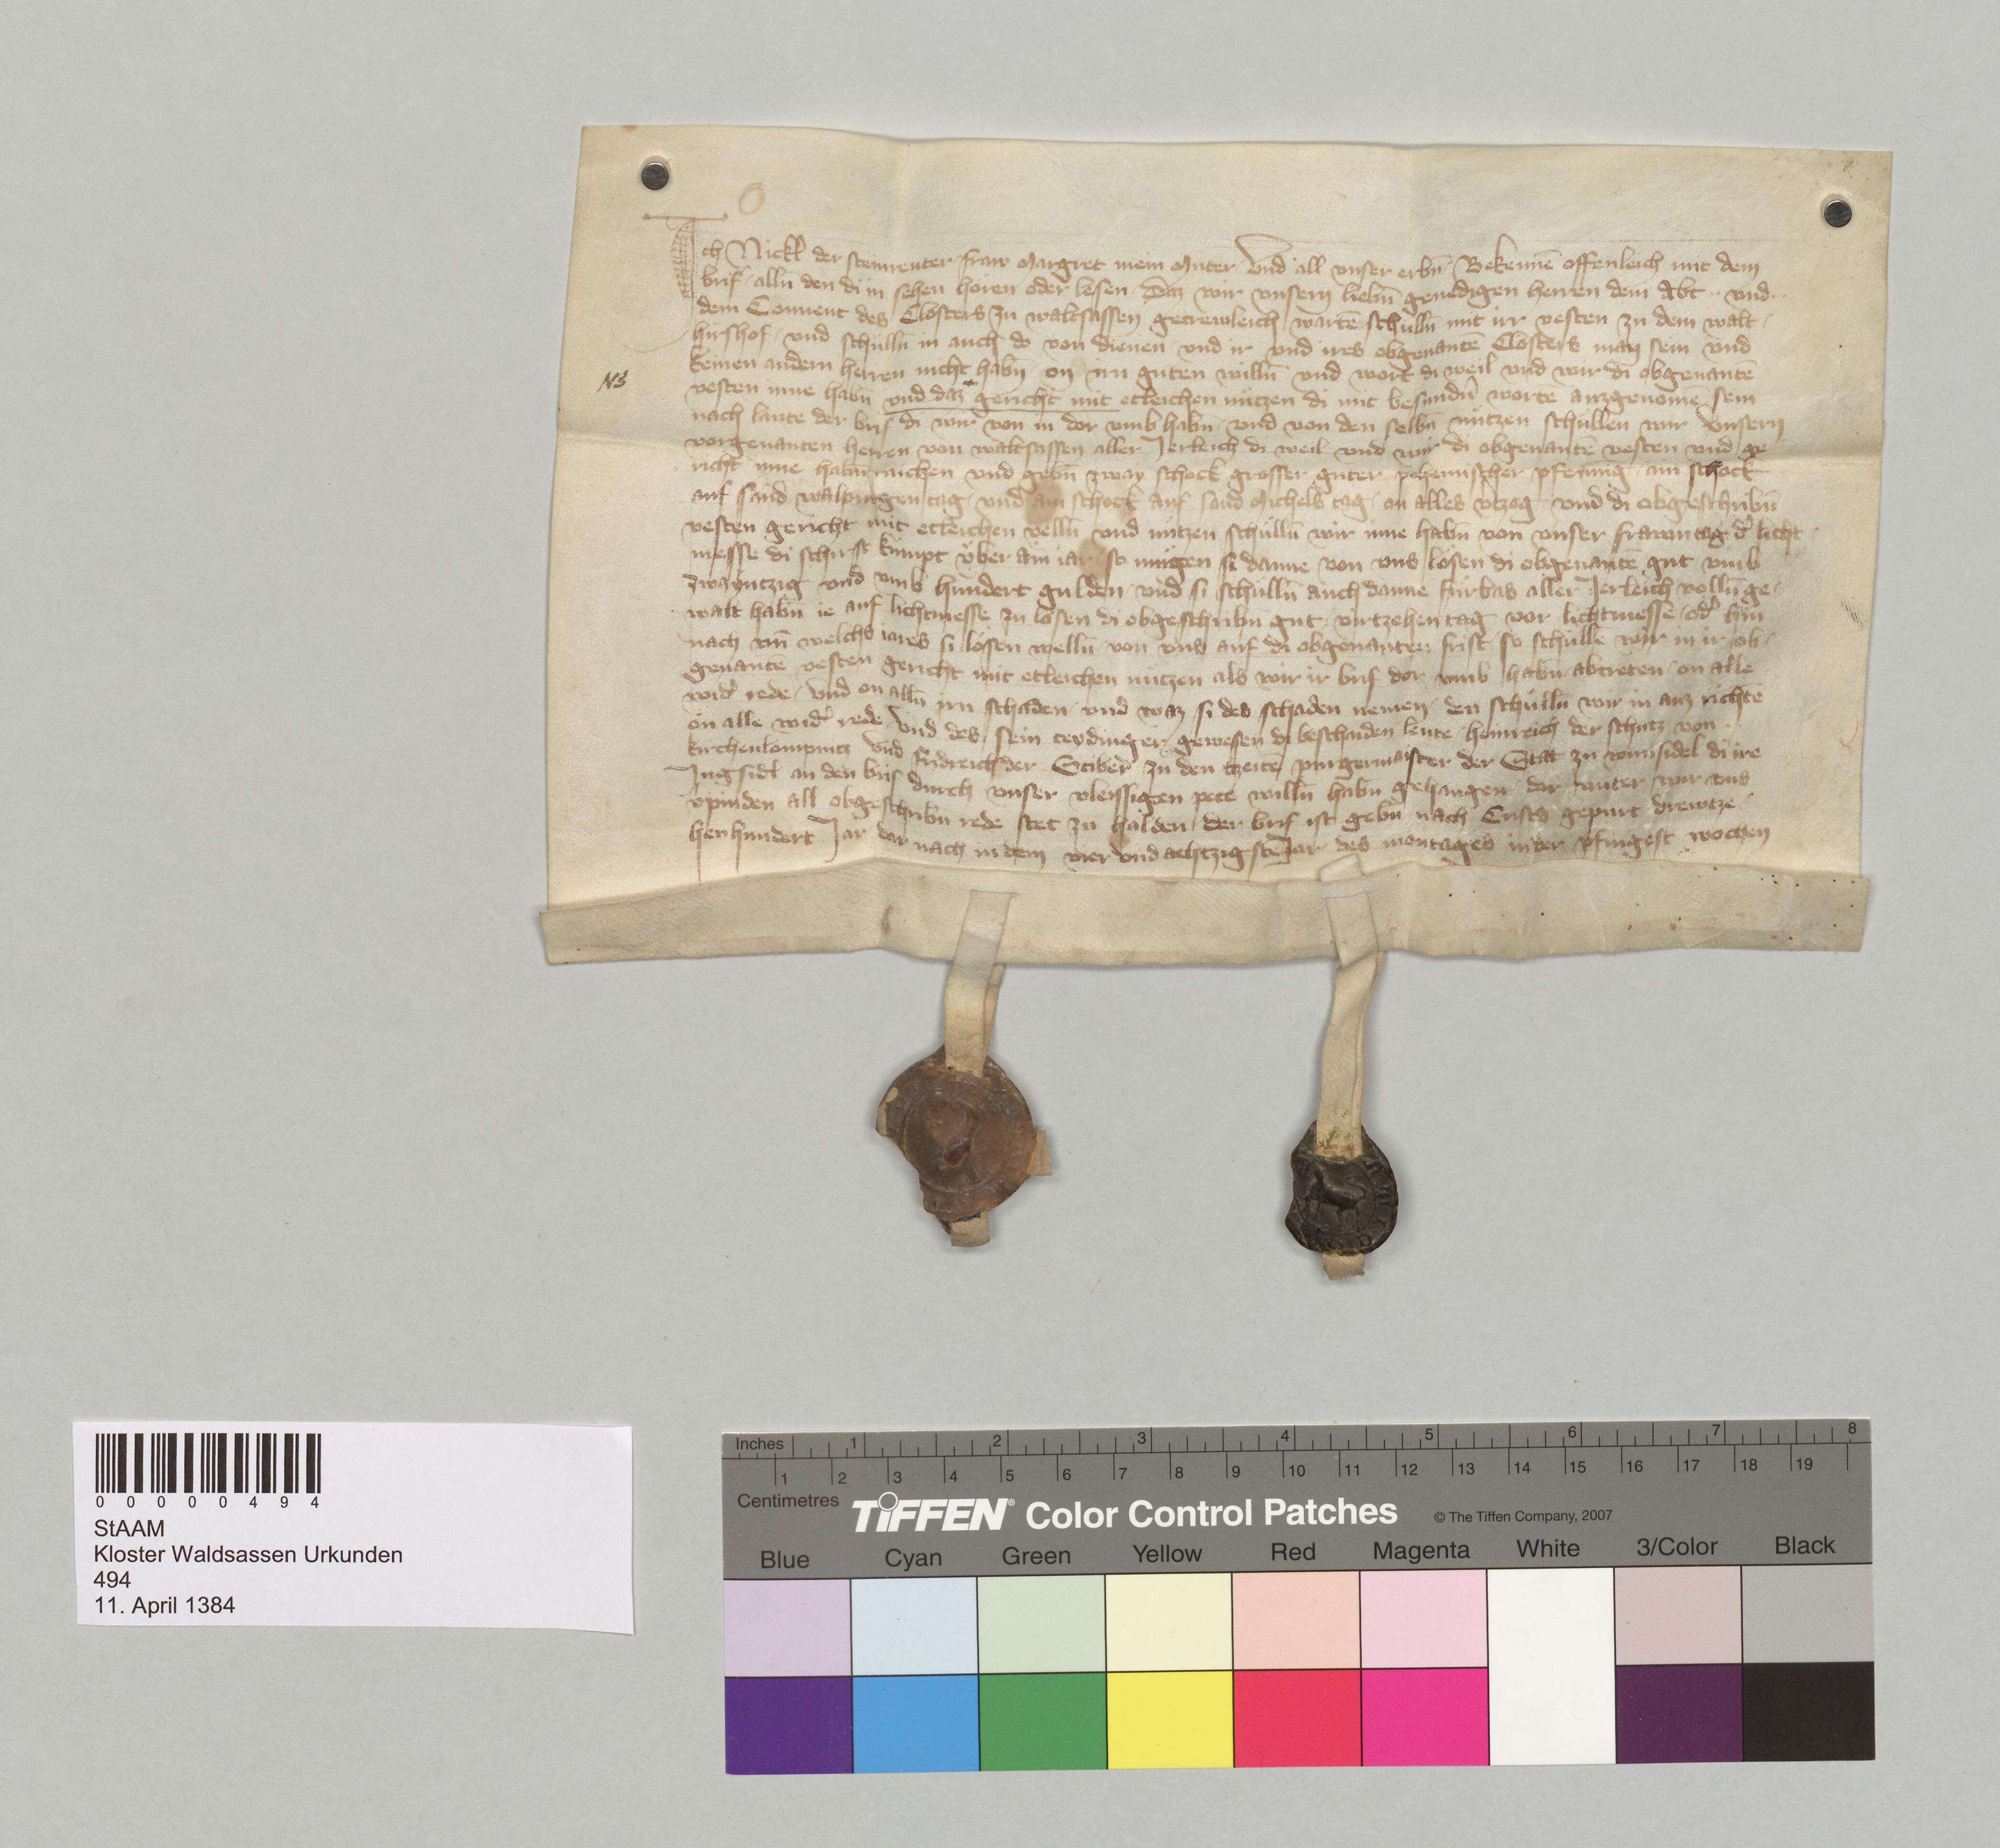 O
Ich Nickl der steinreuter fraw Margret mein Muter Vnd all vnser erbn̄ Bekennē offenleich mit dem
brif alln̄ den di in sehen hören oder lesen Daz wir vnsern liebn̄ genedigen herren dem Abt vnd
dem Conuent des Closters zu waltsassen getrewleich wartē schülln̄ mit irr vesten zu dem walt
hirshof vnd schülln̄ in auch do von dienen vnd ir vnd ires obgenantē Closters man sein vnd
keinen andern herren nicht habn̄ on irn guten willn̄ vnd wort di weil vnd wir di obgenantē
NB
vesten inne habn̄ vnd daz gericht mit etleichen nützen di mit besundn̄ wortē auzgenomē sein
nach laute der brif di wir von in dor vmb habn̄ vnd von den selbn̄ nützen schüllen wir vnsern
vorgenanten herren von waltsassen aller Jerleich di weil vnd wir di obgenantē vesten vnd ge
richt inne habn̄ raichen vnd gebn̄ zway schock grosser guter pehemischer pfennig ain schock
auf sand walpurgen tag vnd ain schock auf sand Michels tag on alles vtzog vnd di obgeschribn̄
vesten gericht mit etleichen velln̄ vnd nützen schülln̄ wir inne habn̄ von vnser frawn tag d' licht
messe di schirst kumpt über ain iar so mügen si danne von vns lösen di obgenantē gut vmb
zwayntzig vnd vmb hundert gulden vnd si schülln̄ auch danne fürbas aller Jerleich vollū ge
walt habn̄ ie auf lichtmesse zu lösen di obgeschribn̄ gut virtzehen tag vor lichtmesse od' hin
nach vn̄ welchs iares si lösen welln̄ von vns auf di obgenanten frist so schülle wir in ir ob
genantē vesten gericht mit etleichen nützen als wir ir brif dor vmb habn̄ abtreten on alle
wid' rede vnd on alln̄ irn schaden vnd waz si des schaden nemen den schülln̄ wir in auz richtē
on alle wid' rede Vnd des sein teydinger gewesen di beschaiden leute heinreich der schutz von
kirchenlompnitz vnd Fridreich der Stiber zu den tzeitē purgermaister der Stat zu wunsidel di ire
Jngsidl an den brif durch vnser vleissigen pete willn̄ habn̄ gehangen dar vnter wir vns
vpinden all obgeschribn̄ rede stet zu halden der brif ist gebn̄ nach Cristz gepurt drewtze
henhundert Jar dor nach in dem vier vnd achtzigstē Jar des montages in der pfingest wochen
00000494
StAAM
Kloster Waldsassen Urkunden
494
11. April 1384
Inches 1 2 3 4 5 6 7 8
1 2 3 4 5 6 7 8 9 10 11 12 13 14 15 16 17 18 19
Centimetres
TIFFEN® Color Control Patches © The Tiffen Company, 2007
Blue Cyan Green Yellow Red Magenta White 3/Color Black